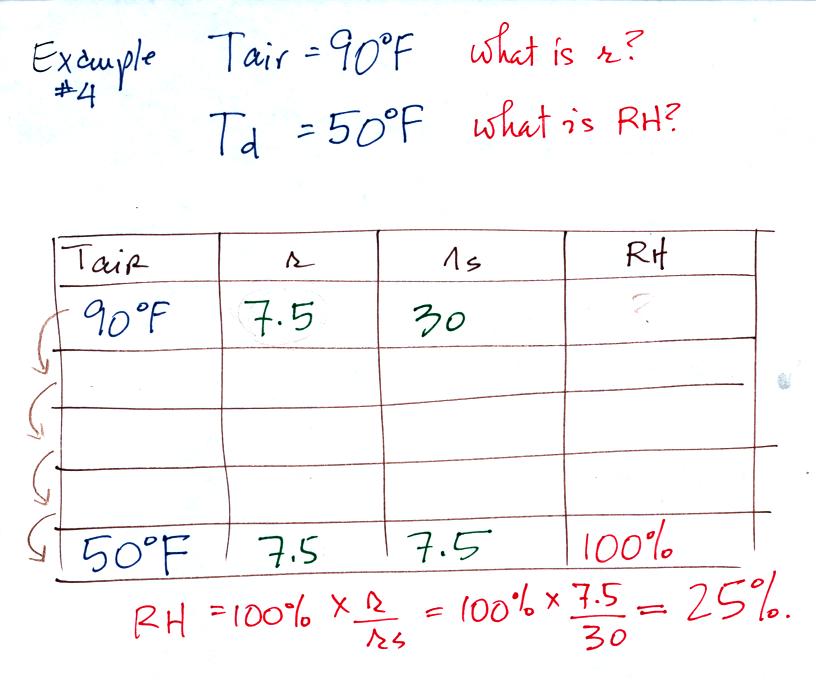 Example Tair = 90°F what is r?
#4
Td = 50°F what is RH?
Tair r rs RH
90°F 7.5 30 ?
50°F 7.5 7.5 100%
RH = 100% × r/rs = 100% × 7.5/30 = 25%.